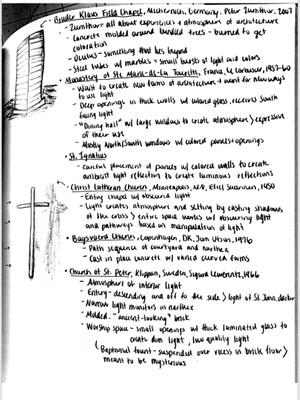 • Bruder Klaus Field Chapel, Mechernich, Germany, Peter Zumthor, 2007
- Zumthor all about experiences + atmosphere of architecture
- Concrete molded around bundled trees - burned to get
coloration
- Oculus - something that lies beyond
- Steel tubes w/ marbles - small bursts of light and colors
• Monastery of Ste Marie-de-La Tourette, France, Le Corbusier, 1957-60
- Want to create new forms of architecture + want for new ways
to use light
- Deep openings in thick walls w/ colored glass, receives South
facing light
- "Dining hall" w/ large windows to create atmosphere > expressive
of their use
- Mostly North/South windows w/ colored panels + openings
• St. Ignatius
- Careful placement of panels w/ colored walls to create
ambient light reflection to create luminous reflections
• Christ Lutheran Church, Minneapolis, MN, Eliel Saarinen, 1950
- Entry chapel w/ obscured light
- Light creates atmosphere and setting by casting shadows
of the cross > entire space works w/ obscuring light
and pathways based on manipulation of light
• Bagsvaerd Church, Copenhagen, DK, Jørn Utzon, 1976
- Path sequence of courtyard and narthex
- Cast in place concrete w/ varied curved forms
• Church of St. Peter, Klippan, Sweden, Sigurd Lewerentz, 1966
- Atmosphere of interior light
- Entry - descending and off to the side > light of St. Jann, darker
- Narrow light monitors in narthex
- Molded, "ancient-looking" brick
- Worship space - small openings w/ thick laminated glass to
create dim light, low quality light
(Baptismal fount - suspended over recess in brick floor)
meant to be mysterious